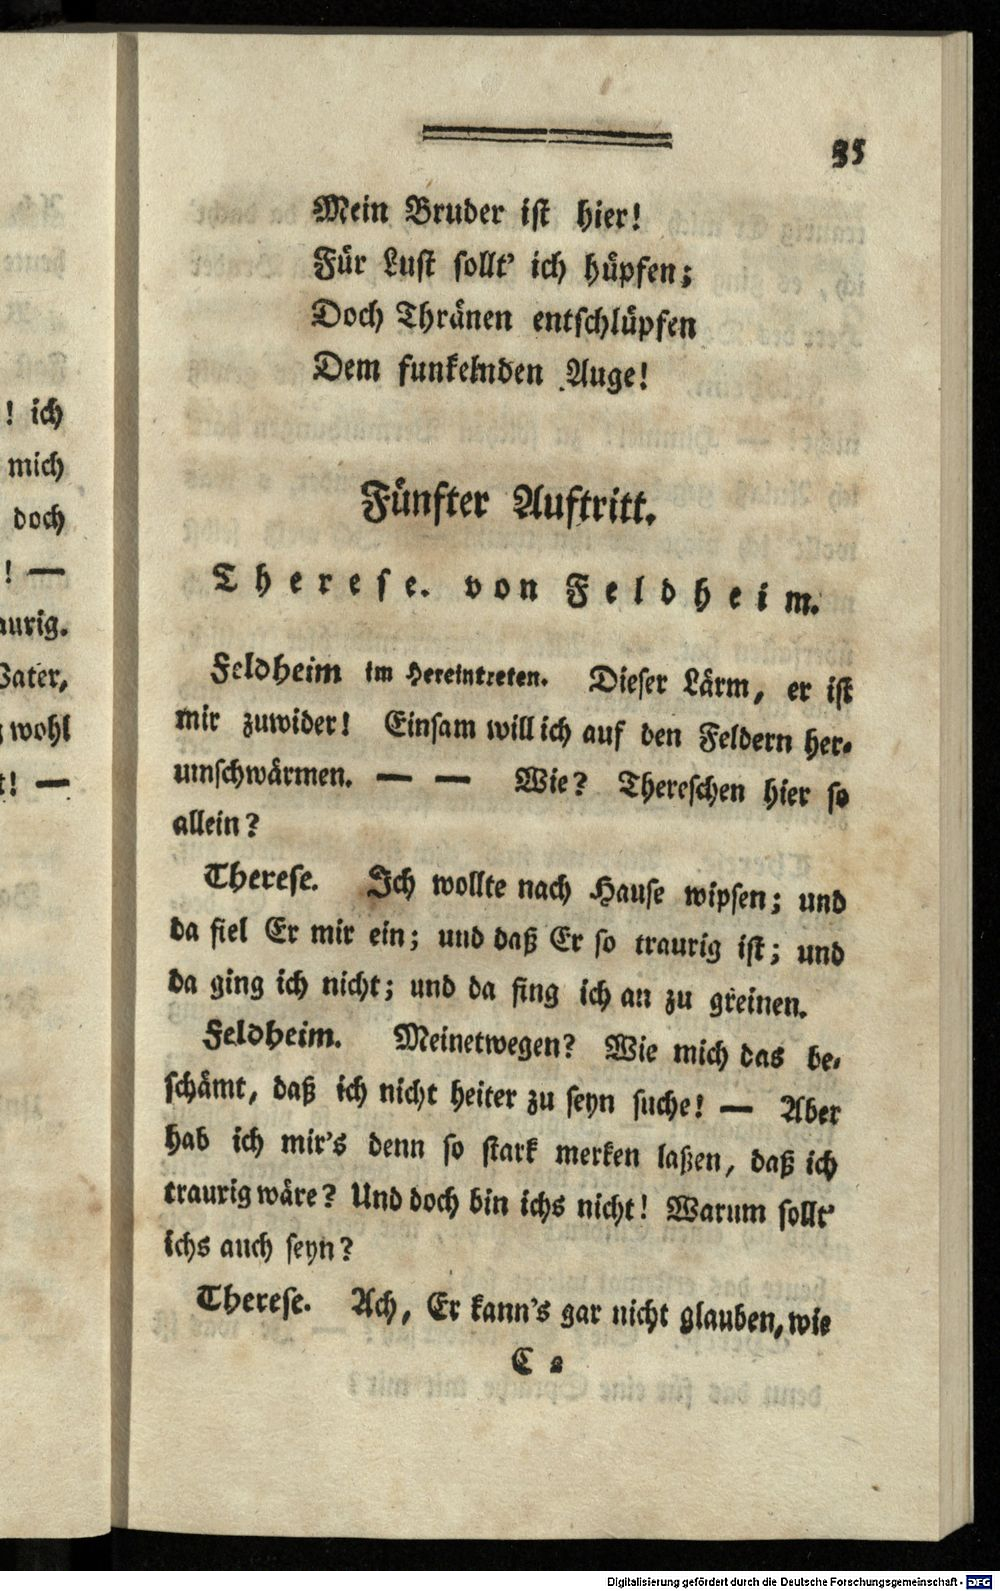 ! ich
mich
doch
! —
aurig.
Vater,
wohl
t! —
35
Mein Bruder ist hier!
Für Lust sollt' ich hüpfen;
Doch Thränen entschlüpfen
Dem funkelnden Auge!
Fünfter Auftritt.
Therese. von Feldheim.
Feldheim im Hereintreten. Dieser Lärm, er ist
mir zuwider! Einsam will ich auf den Feldern her-
umschwärmen. — — Wie? Thereschen hier so
allein?
Therese. Ich wollte nach Hause wipsen; und
da fiel Er mir ein; und daß Er so traurig ist; und
da ging ich nicht; und da fing ich an zu greinen.
Feldheim. Meinetwegen? Wie mich das be-
schämt, daß ich nicht heiter zu seyn suche! — Aber
hab ich mir's denn so stark merken laßen, daß ich
traurig wäre? Und doch bin ichs nicht! Warum sollt'
ichs auch seyn?
Therese. Ach, Er kann's gar nicht glauben, wie
C 2
Digitalisierung gefördert durch die Deutsche Forschungsgemeinschaft - DFG